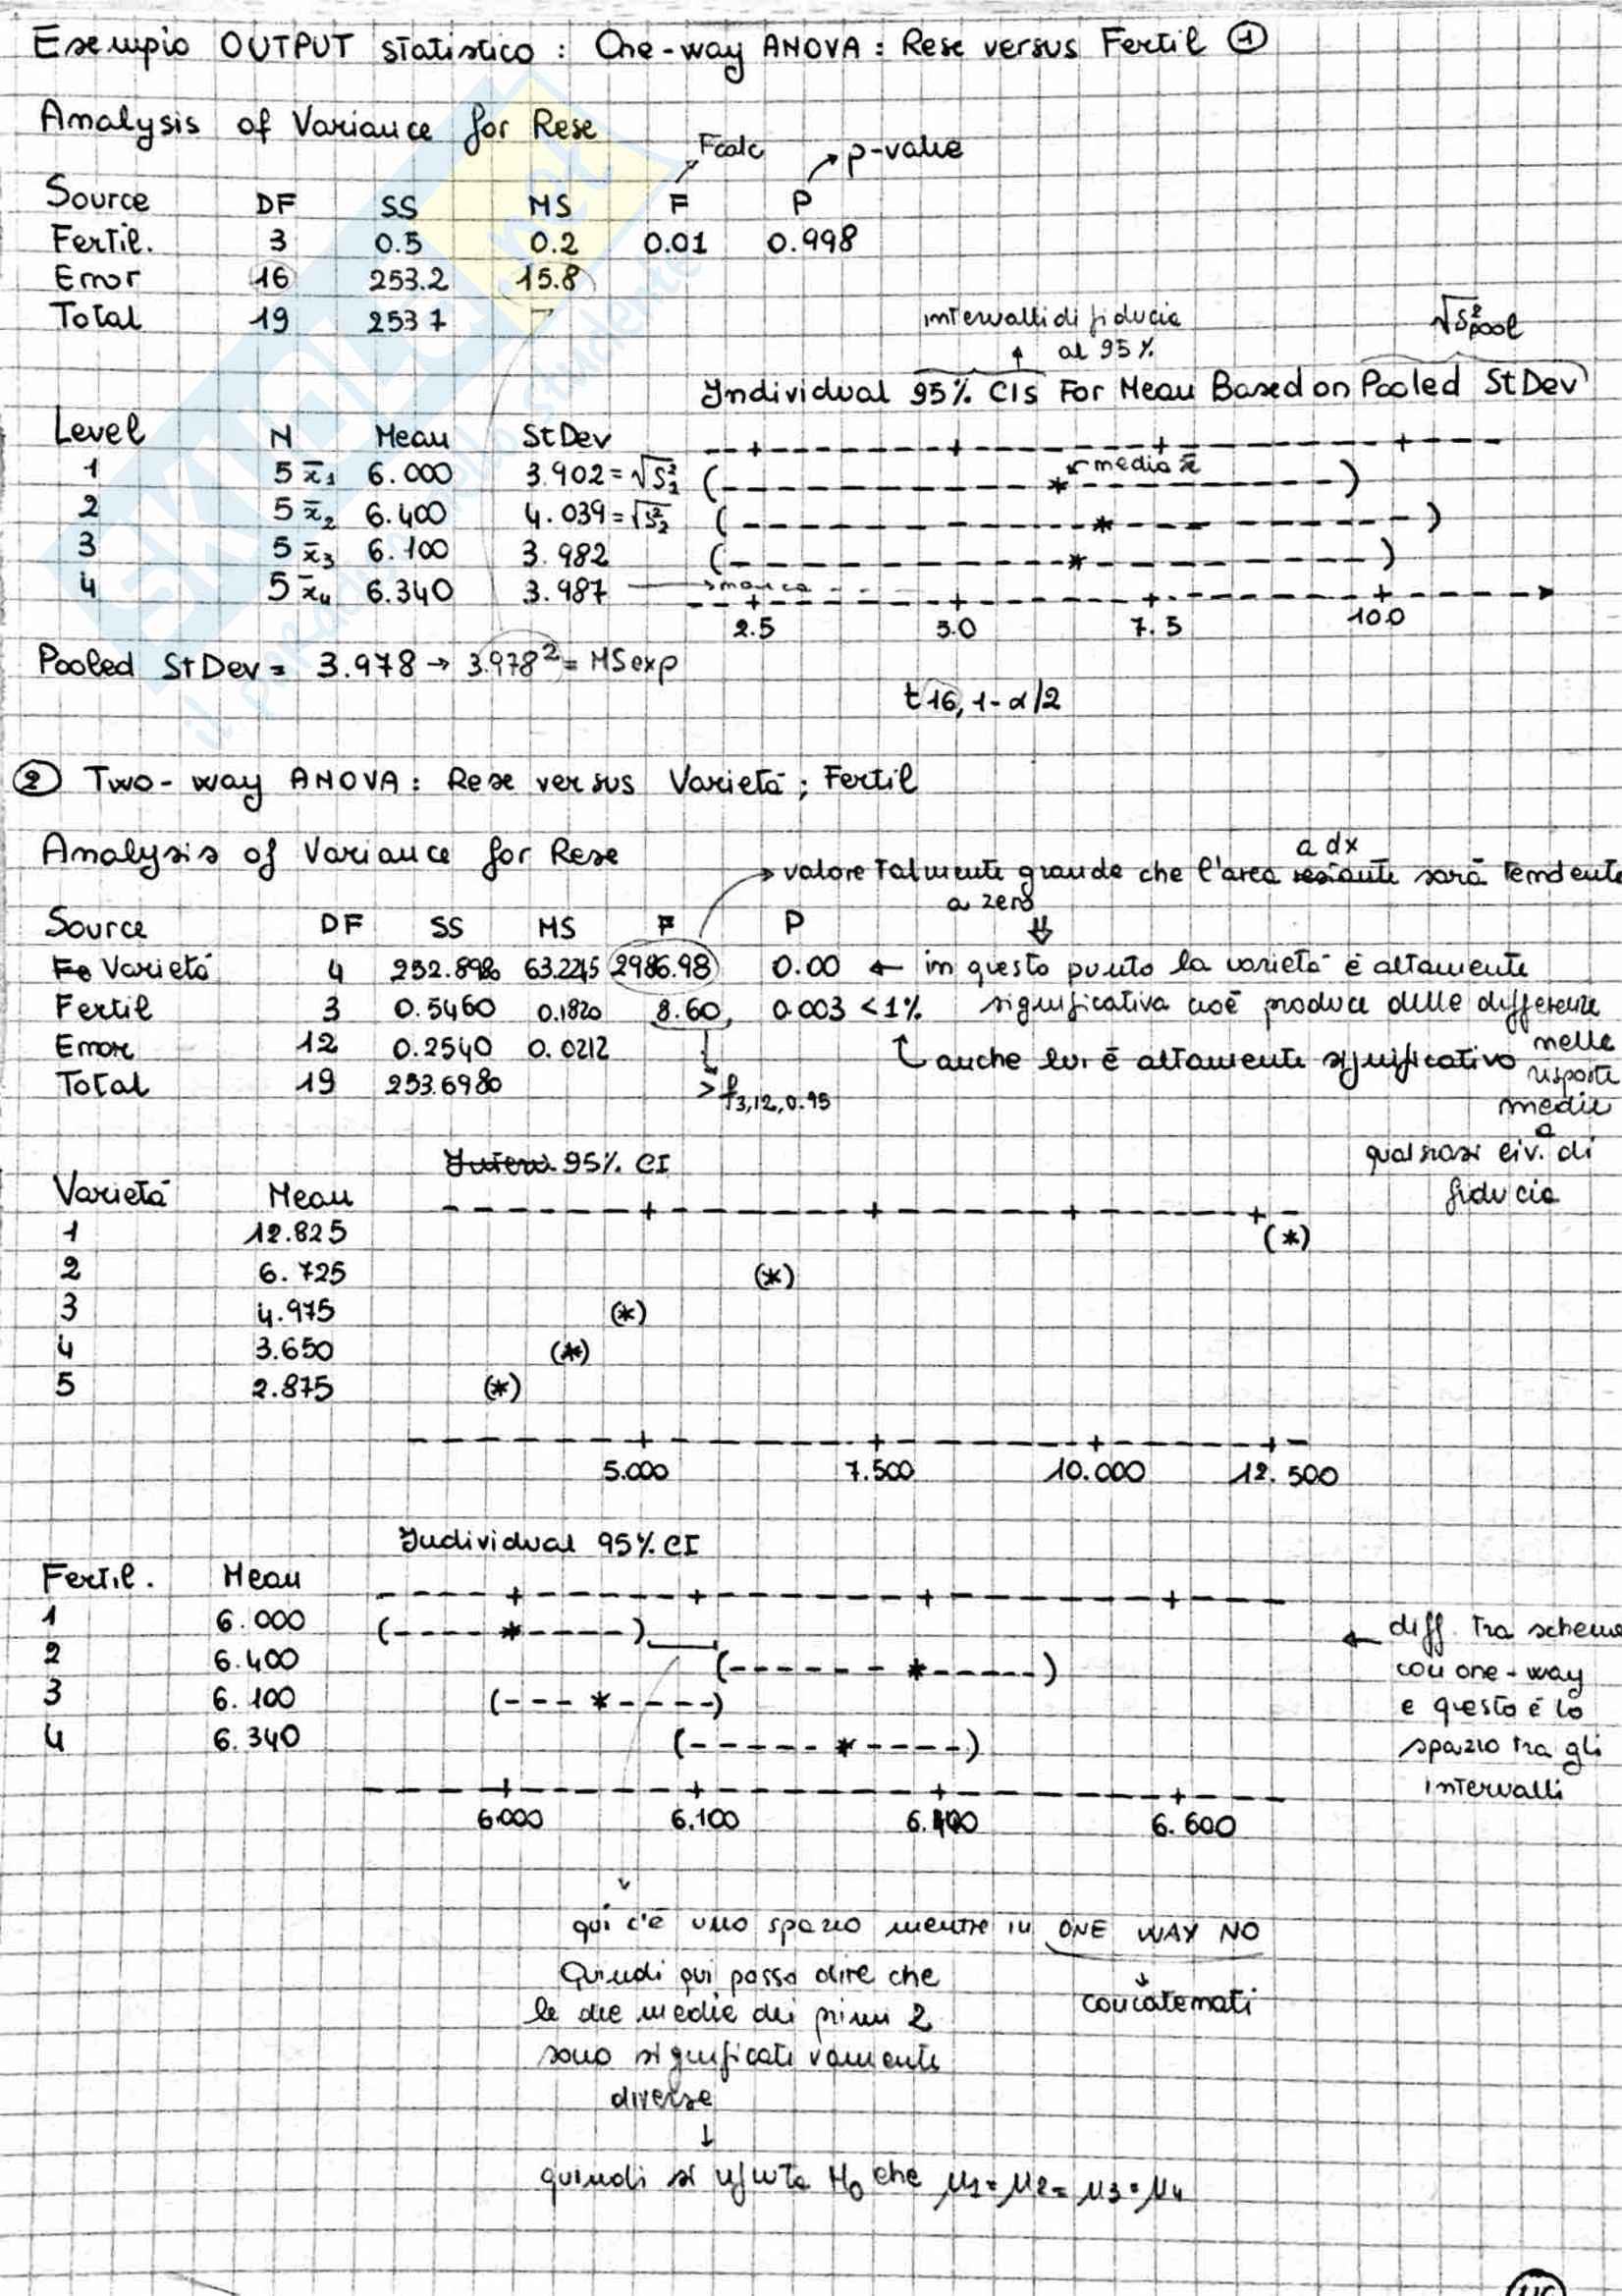 Esempio OUTPUT statistico : One-way ANOVA : Rese versus Fertil ①
Analysis of Variance for Rese
Fcalc
p-value
Source DF SS MS F P
Fertil. 3 0.5 0.2 0.01 0.998
Error 16 253.2 15.8
Total 19 253 7
intervalli di fiducia
al 95%
√S²pool
Individual 95% CIs For Mean Based on Pooled StDev
Level N Mean StDev
media x̄
1 5 x̄1 6.000 3.902 = √S²1
2 5 x̄2 6.400 4.039 = √S²2
3 5 x̄3 6.100 3.982
4 5 x̄4 6.340 3.987 → manca
2.5 5.0 7.5 10.0
Pooled StDev = 3.978 → 3.978² = MSexp
t16, 1-α/2
② Two-way ANOVA : Rese versus Varietà ; Fertil
Analysis of Variance for Rese
a dx
valore talmente grande che l'area sarà tendente
a zero
Source DF SS MS F P
Fe Varietà 4 252.8980 63.2245 2986.98 0.00 ← in questo punto la varietà è altamente
Fertil 3 0.5460 0.1820 8.60 0.003 <1% significativa cioè produce delle differenze
Error 12 0.2540 0.0212 anche lui è altamente significativo nelle
Total 19 253.6980 > f3,12,0.95 risposte
medie
a
qualsiasi liv. di
fiducia
95% CI
Varietà Mean
1 12.825 (*)
2 6.725 (*)
3 4.975 (*)
4 3.650 (*)
5 2.875 (*)
5.000 7.500 10.000 12.500
Individual 95% CI
Fertil. Mean
1 6.000
2 6.400
3 6.100
4 6.340
← diff. tra schema
con one-way
e questo è lo
spazio tra gli
intervalli
6.000 6.100 6.400 6.600
qui c'è uno spazio mentre in ONE WAY NO
Quindi qui posso dire che
concatenati
le due medie dei primi 2
sono significativamente
diverse
↓
quindi si rifiuta H0 che μ1 = μ2 = μ3 = μ4